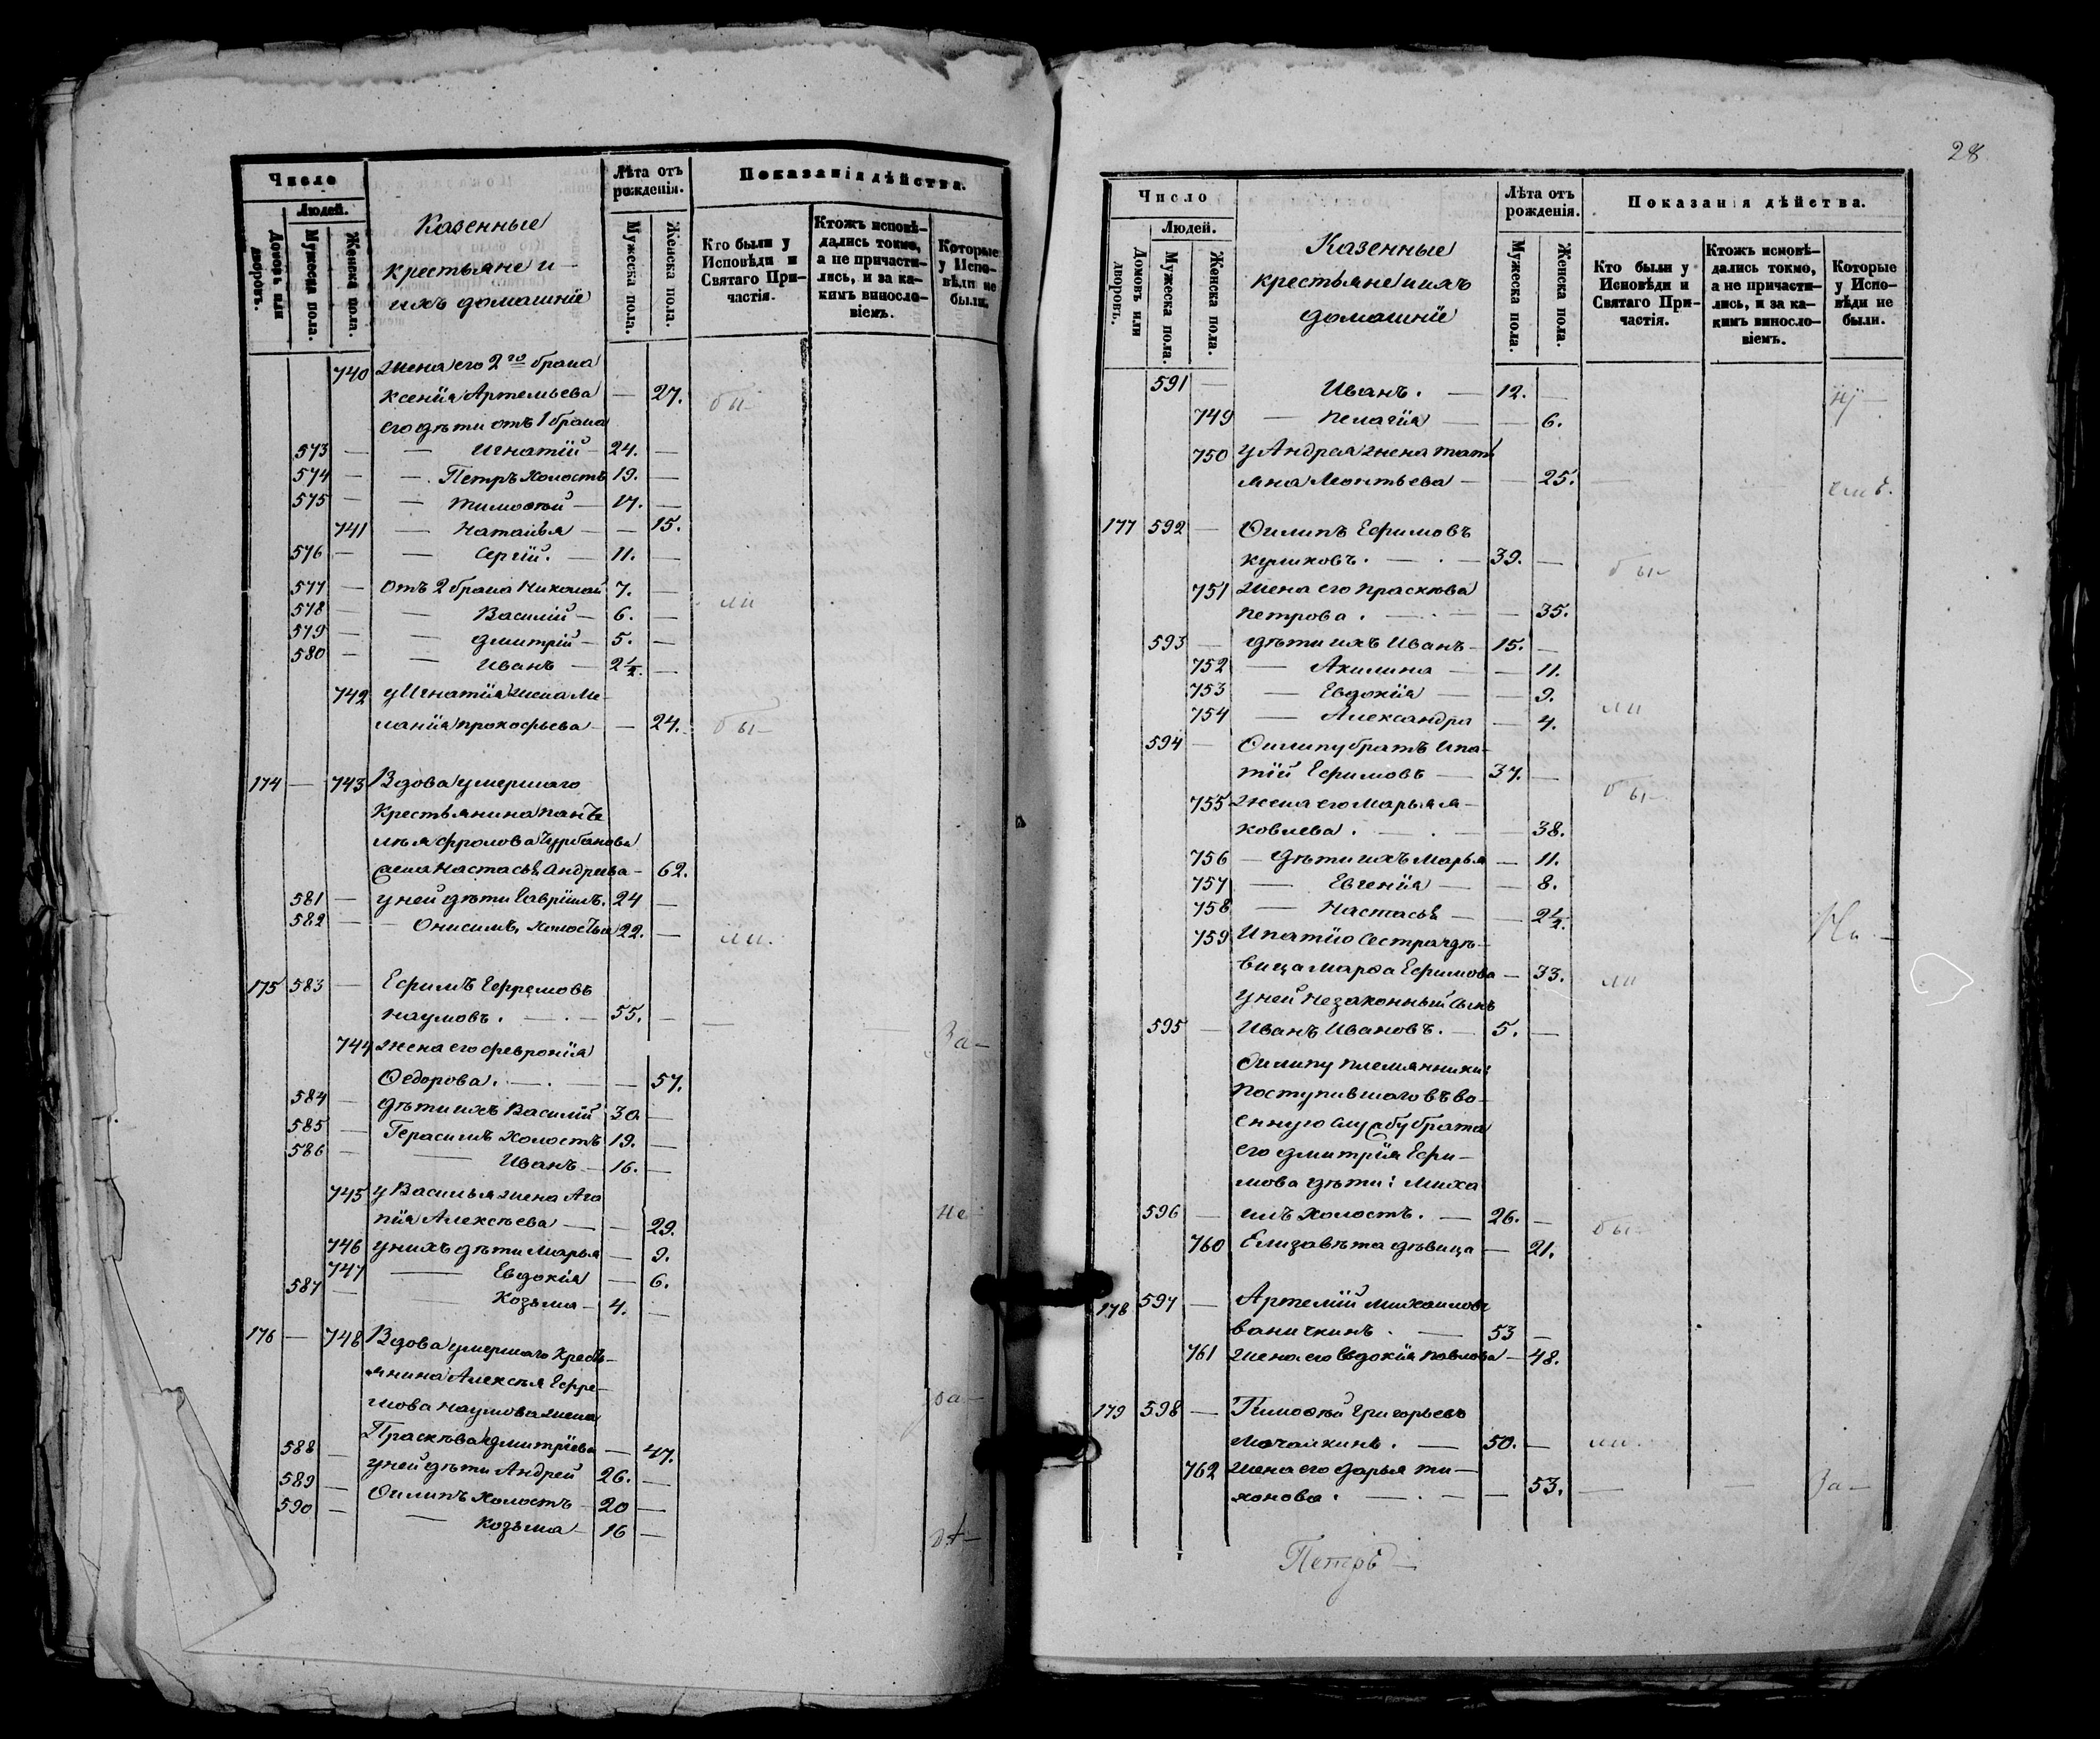 Число
Людей.
Домовъ или дворовъ.
Мужеска пола.
Женска пола.
Казенные
крестьяне и
ихъ домашніе
Лѣта отъ рожденія.
Мужеска пола.
Женска пола.
Показанія дѣйства.
Кто были у Исповѣди и Святаго Причастія.
Ктожъ исповѣдались токмо, а не причастились, и за какимъ винословіемъ.
Которые у Исповѣди не были.
740 жена его 2го брака
Ксенія Артемьева — 27. бы-
его дѣти отъ 1 брака
573 — — Игнатій — 24. —
574 — — Петръ холостъ 19. —
575 — — Тимоѳей — 17. —
741 — Наталья — — 15.
576 — — Сергій. — 11. —
577 — отъ 2 брака Николай 7. —
578 — — Василій — 6. — ли
579 — — Дмитрій — 5. —
580 — — Иванъ — 2½. —
742 у Игнатія жена Ме-
ланія Прокофьева — — 24. бы-
174 — 743 Вдова умершаго
крестьянина Пантѣ
лѣя Фролова Чурбанова
жена Настасья Андреева — 62.
581 — у ней дѣти Гавріилъ. 24 —
582 — — Онисимъ, холосты 22. — ли.
175 583 — Ефимъ Ефремовъ
Наумовъ. — . — 55. — — — За-
744 жена его Февронія
Ѳедорова. — . — — 57.
584 — дѣти ихъ Василій 30. —
585 — Герасимъ холостъ 19. —
586 — — Иванъ — 16. —
745 у Василья жена Ага
пія Алексѣева — — 29. не-
746 у нихъ дѣти Марья — 9.
747 — Евдокія — 6.
587 — — Козьма — 4. —
176 — 748 Вдова умершаго кресть-
янина Алексѣя Ефре-
мова Наумова жена
Прасковья Дмитріева — 47.
588 — у ней дѣти Андрей 26. —
589 — Ѳилипъ холостъ — 20 —
590 — — Козьма — 16 —
28
Число
Людей.
Домовъ или дворовъ.
Мужеска пола.
Женска пола.
Казенные
крестьяне и ихъ
домашніе
Лѣта отъ рожденія.
Мужеска пола.
Женска пола.
Показанія дѣйства.
Кто были у Исповѣди и Святаго Причастія.
Ктожъ исповѣдались токмо, а не причастились, и за какимъ винословіемъ.
Которые у Исповѣди не были.
591 — Иванъ. — 12. —
749 — Пелагія — — 6.
750 у Андрея жена Тать
яна Леонтьева — — 25. —
177 592 — Ѳилипъ Ефимовъ
Куликовъ. — . — 39. — бы-
751 жена его Прасковья
Петрова. — . — — 35.
593 — дѣти ихъ Иванъ — 15. —
752 — Акилина — — 11.
753 — Евдокія — — 9.
754 — Александра — 4. ли
594 — Ѳилипу братъ Ипа-
тій Ефимовъ — 37. — бы-
755 жена его Марья Я-
ковлева. — . — — 38.
756 — дѣти ихъ Марья — 11.
757 — Евгенія — — 8.
758 — Настасья — — 2½.
759 Ипатію сестра дѣ-
вица Марѳа Ефимова — 33. ли
у ней незаконный сынъ
595 — Иванъ Ивановъ. — 5. —
Ѳилипу племянники:
поступившаго въ во-
енную службу брата
его Дмитрія Ефи-
мова дѣти: Миха
596 — илъ холостъ. — 26. — бы-
760 Елизавѣта дѣвица — 21.
178 597 — Артемій Михаиловъ
Ваничкинъ. — 53 —
761 жена его Евдокія Павлова — 48.
179 598 — Тимоѳей Григорьевъ
Мочалкинъ. — 50. — ли.
762 жена его Дарья Ти-
хонова. — . — — 53. — — За-
Петръ —